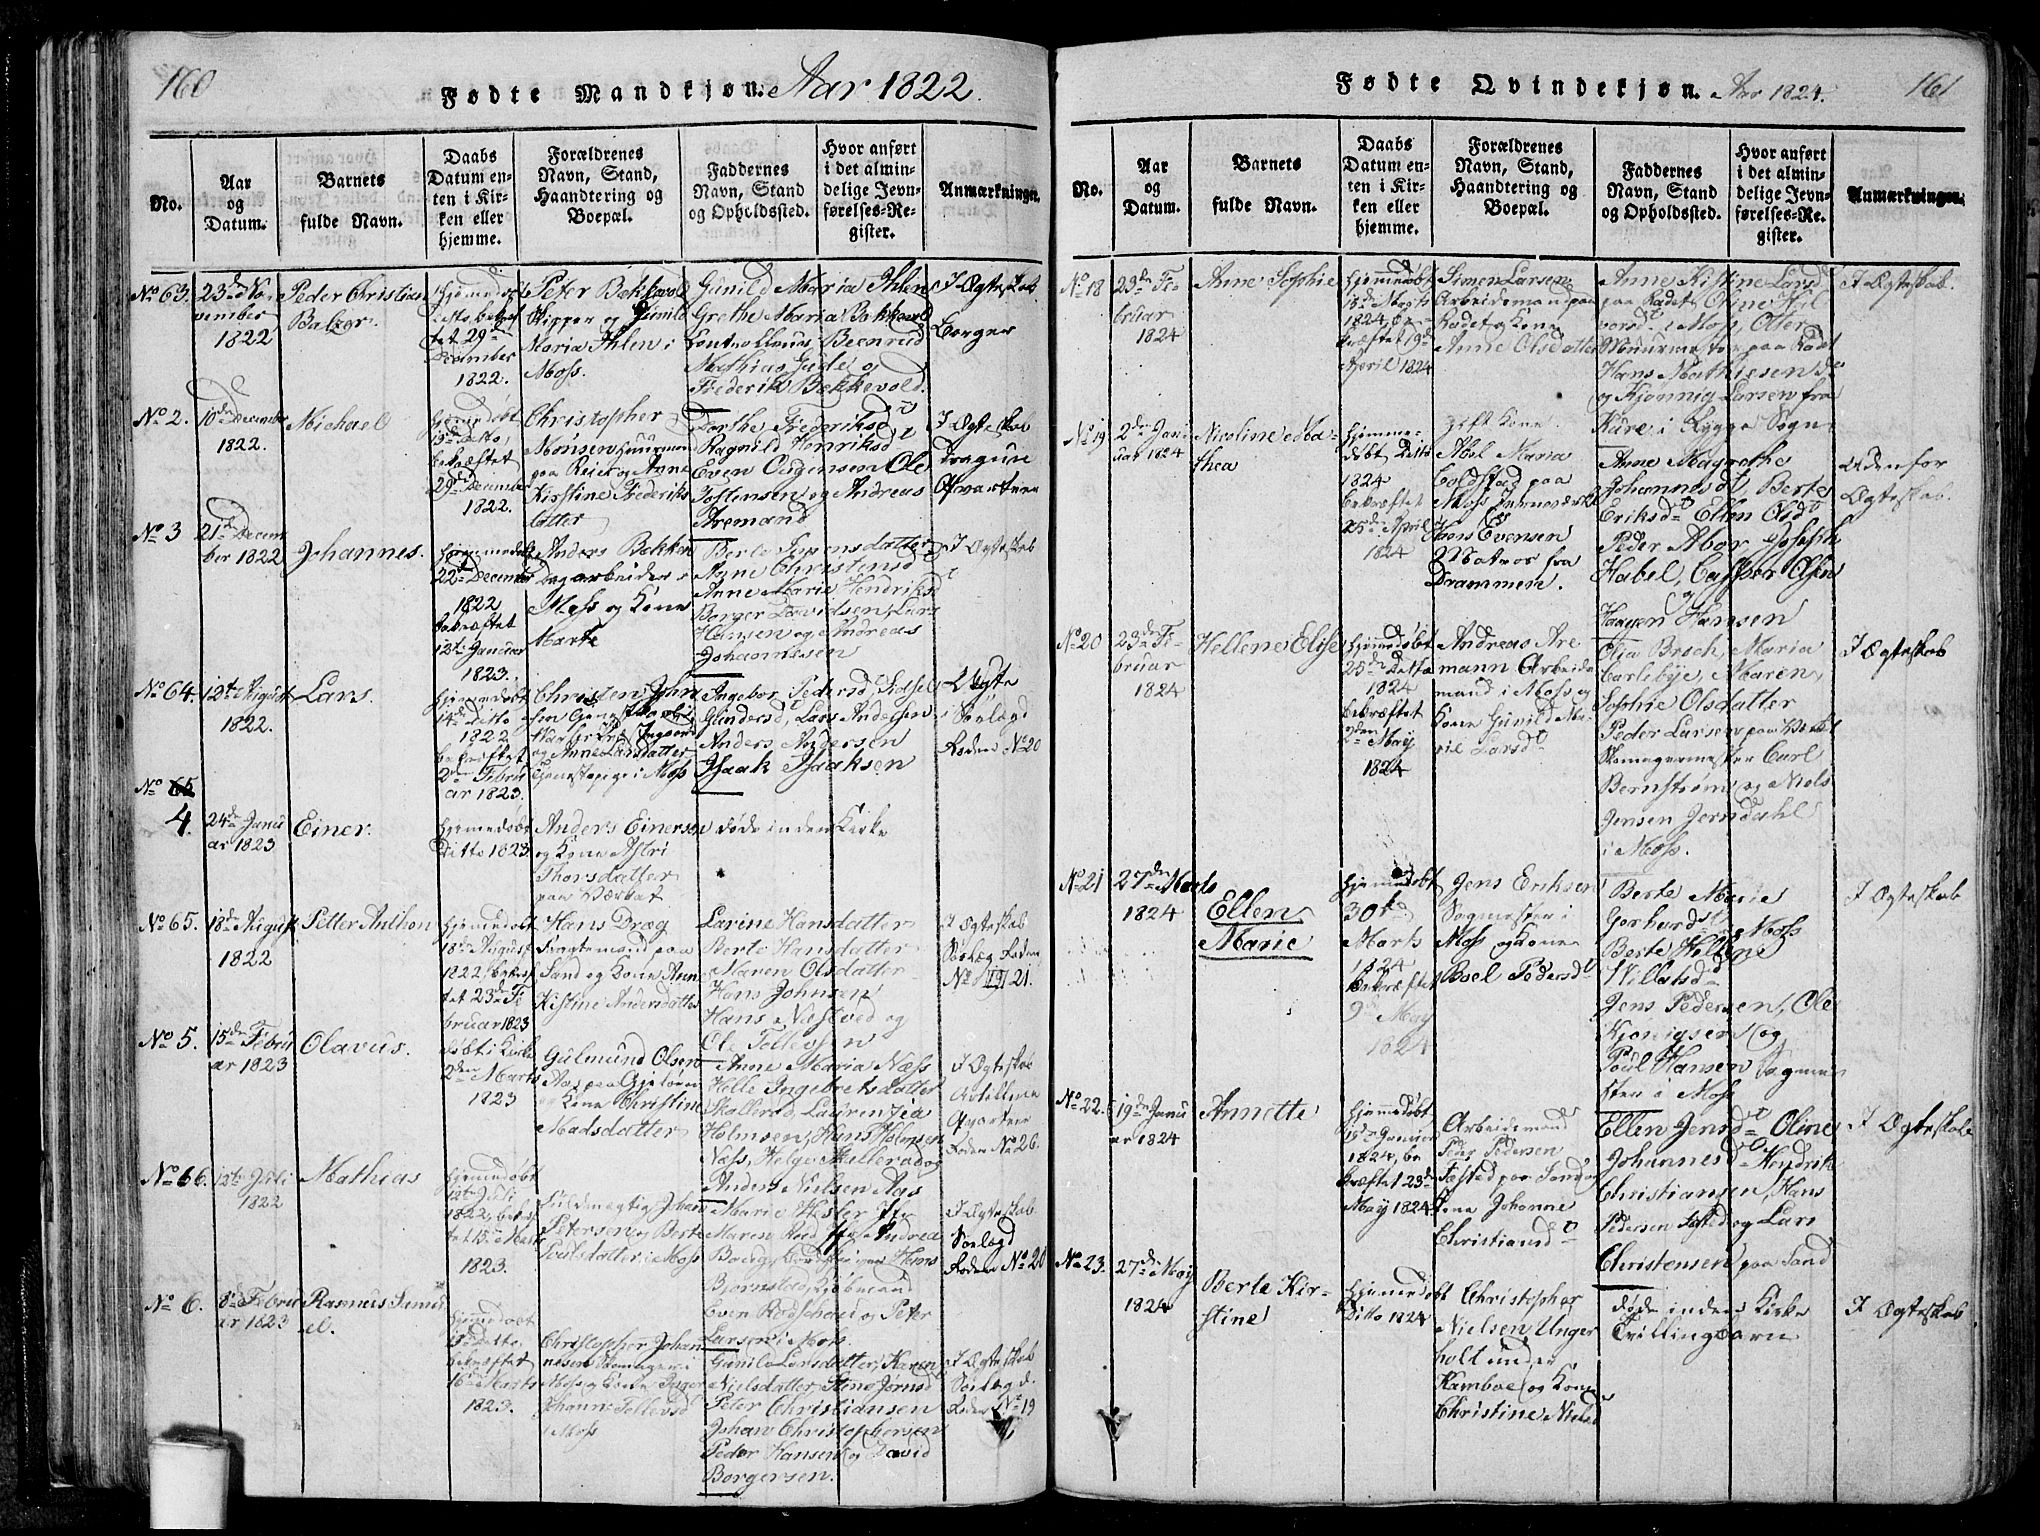 160
Fødte Mandkjøn. Aar 1822.
No.
Aar
og
Datum.
Barnets
fulde Navn.
Daabs
Datum en-
ten i Kir-
ken eller
hjemme.
Forældrenes
Navn, Stand,
Haandtering og
Boepæl.
Faddernes
Navn, Stand
og Opholdssted.
Hvor anført
i det almin-
delige Jevn-
førelses-Re-
gister.
Anmærkninger.
No 63.
23de No-
vember
1822
Peder Christian
Balzer.
Hjemedøbt
Dito, bekræf
tet 29de
December
1822.
Peter Bekkevold
Skipper og Gunild
Maria Ihlen i
Moss.
Gunild Maria Ihlen
Grethe Maria Bekkevold
Mathias Gude og
Frederik Bekkevold.
I Ægteskab
Borger
No 2.
10de December
1822.
Michael
Hjemedøbt
15de Dito,
bekræftet
29de December
1822.
Christopher
Monsen Huusmand
paa Reier og Anne
Kirstine Frederiks
datter
Dorthe Frederiksd
Ragnild Henriksd
Even Ougensen Ole
Jostensen og Andreas
Aremand
I Ægteskab
Dragune
Qvarteer
No 3
21de Decem
ber 1822
Johannes.
Hjemmedøbt
22de December
1822
bekræftet
12te Januar
1823.
Anders Bekken
Dagarbeider i
Moss og Kone
Marte
Berte Simensdatter
Anne Christensd
Anne Marie Hendriksd
Borger Davidsen, Lars
Hansen og Andreas
Johannesen
I Ægteskab
No 64.
12te August
1822.
Lars.
Hjemedøbt
14de Ditto
1822
bekræftet
2den Febru
ar 1823.
Christen John
sen
og Anne Larsdatter
Tjenestepige i Moss
Ingebor Pedersd, Sidsel
Gundersd, Lars Andersen
Anders Andersen
Isaak Isaksen
Uægte
Søelægd
Roden No 20
No 65
4.
24de Janu
ar 1823
Einer.
Hjemedøbt
Ditto 1823
Anders Einersen
og Kone Astri
Thorsdatter
paa Værket
døde inden Kirke
No 65.
18de August
1822
Petter Anthon
Hjemedøbt
18de August
1822, bekræf
tet 23de Fe
bruar 1823
Hans Dræg
Sand og Kone Ann
Kistine Andersdatter
Larine Hansdatter
Berte Hansdatter
Maren Olsdatter
Hans Johnsen
Hans Næstved og
Ole Tollevsen
I Ægteskab
Søelæg Roden
No 21.
No 5.
15de Febru
ar 1823
Olavus.
døbt i Kirke
2den Marts
1823
Gulmund Olsen
Aas paa Gjeløen
og Kone Christine
Madsdatter
Anne Maria Næss
Helle Ingebretsdatter
Skallerød, Laurentzea
Holmsen, Hans Holmsen
Næss, Helge Skallerød og
Anders Nielsen Aas
I Ægteskab
Artillerie
Qvarteer
Roden No 26.
No 66.
12te Juli
1822
Mathias
Hjemedøbt
12te Juli
1822, bekræf
tet 15de Marts
1823.
Fuldmegtig Johan
Petersen og Berte
Poulsdatter, i Moss
Marie Hesler
Boeng, Hans
Bjørnstad, Kjøbmand
Even Rodschou og Peter
Larsen i Moss
I Ægteskab
Søelægd
Roden No 20
No 6.
8de Febru
ar 1823
Rasmus Samu
el.
Hjemedøbt
Ditto
bekræftet
16de Marts
1823.
Christopher Johan
nesen Skomager i
Moss og Kone Inger
Johanne Tollevsd
i Moss
Gunild Larsdatter, Karen
Nielsdatter, Stine Jørnsd
Peter Christiansen
Johan Christophersen
Peder Hansen og David
Borgersen.
I Ægteskab
Søelægd.
Roden No 19
161
Fødte Qvindekjøn. Aar 1824.
No.
Aar
og
Datum.
Barnets
fulde Navn.
Daabs
Datum en-
ten i Kir-
ken eller
hjemme.
Forældrenes
Navn, Stand,
Haandtering og
Boepæl.
Faddernes
Navn, Stand
og Opholdssted.
Hvor anført
i det almin-
delige Jevn-
førelses-Re-
gister.
Anmærkninger.
No 18
29de Fe
bruar
1824
Anne Sophie
Hjemmedøbt
13de Marts
1824, be
kræftet 19de
April 1824
Simen Larsen
Arbeidsmand paa
Rødet og Kone
Anne Olsdatter
Anne Kistine Larsd
paa Rødet, Oline Hal
vorsd i Moss, Otter
Muurmester paa Rødt
Hans Mathiesen do
og Kjønnig Larsen fra
Kure i Rygge Sogn
I Ægteskab.
No 19
2den Janu
uar 1824
Nicoline Ma
thea
Hjemme-
døbt Ditto
1824
bekræftet
25de April
1824
gift Kone
Abel Maria
Coldstad paa
Moss Jernværk
Hans Evensen
Matros fra
Drammen.
Anne Magrethe
Johannesdt Berte
Eriksd Ellen Olsd
Peder Moor Joseph
Habel, Casper Olsen
og
Haagen Hansen
Udenfor
Ægteskab.
No 20
23de Fe
bruar
1824
Hellene Elise
Hjemmedøbt
25de Ditto
1824
bekræftet
2den May
1824
Andreas Are
mann Arbeids
mand i Moss og
Kone Gunild Ma
rie Larsd
Olja Broch, Maria
Carlebye, Maren
Sophie Olsdatter
Peder Larsen paa Krabbel
Skomagermester Carl
Bernstrøm og Niels
Jensen Jerndahl
i Moss.
I Ægteskab
No 21
27de Marts
1824
Ellen
Marie
Hjemmedøbt
30te
Marts
1824
bekræftet
9de May
1824
Jens Eriksen
Sagmester i
Moss og Kone
Boel Pedersd
Berte Marie
Gerhardsd Moss
Berte Hellene
Willatsd
Jens Pedersen, Ole
Kjonigsen og
Poul Hansen Sagme
ster i Moss
I Ægteskab
No 22.
19de Janu
ar 1824
Annette
Hjemmedøbt
19de Januar
1824, be
kræftet 23de
May 1824
Arbeidsmand
Peder Pedersen
Fæsted paa Sand og
Kone Johanne
Christiansd
Ellen Jensd Oline
Johannesd Hendrik
Christiansen, Hans
Pedersen Fæsted og Lars
Christensen paa Sand
I Ægteskab
No 23.
27de May
1824
Berte Kir-
stine
Hjemmedøbt
Ditto 1824
Christopher
Nielsen Unger
holt under
Kamboe og Kone
Christine Nielsd
døde inden Kirke
Tvillingbarn
I Ægteskab